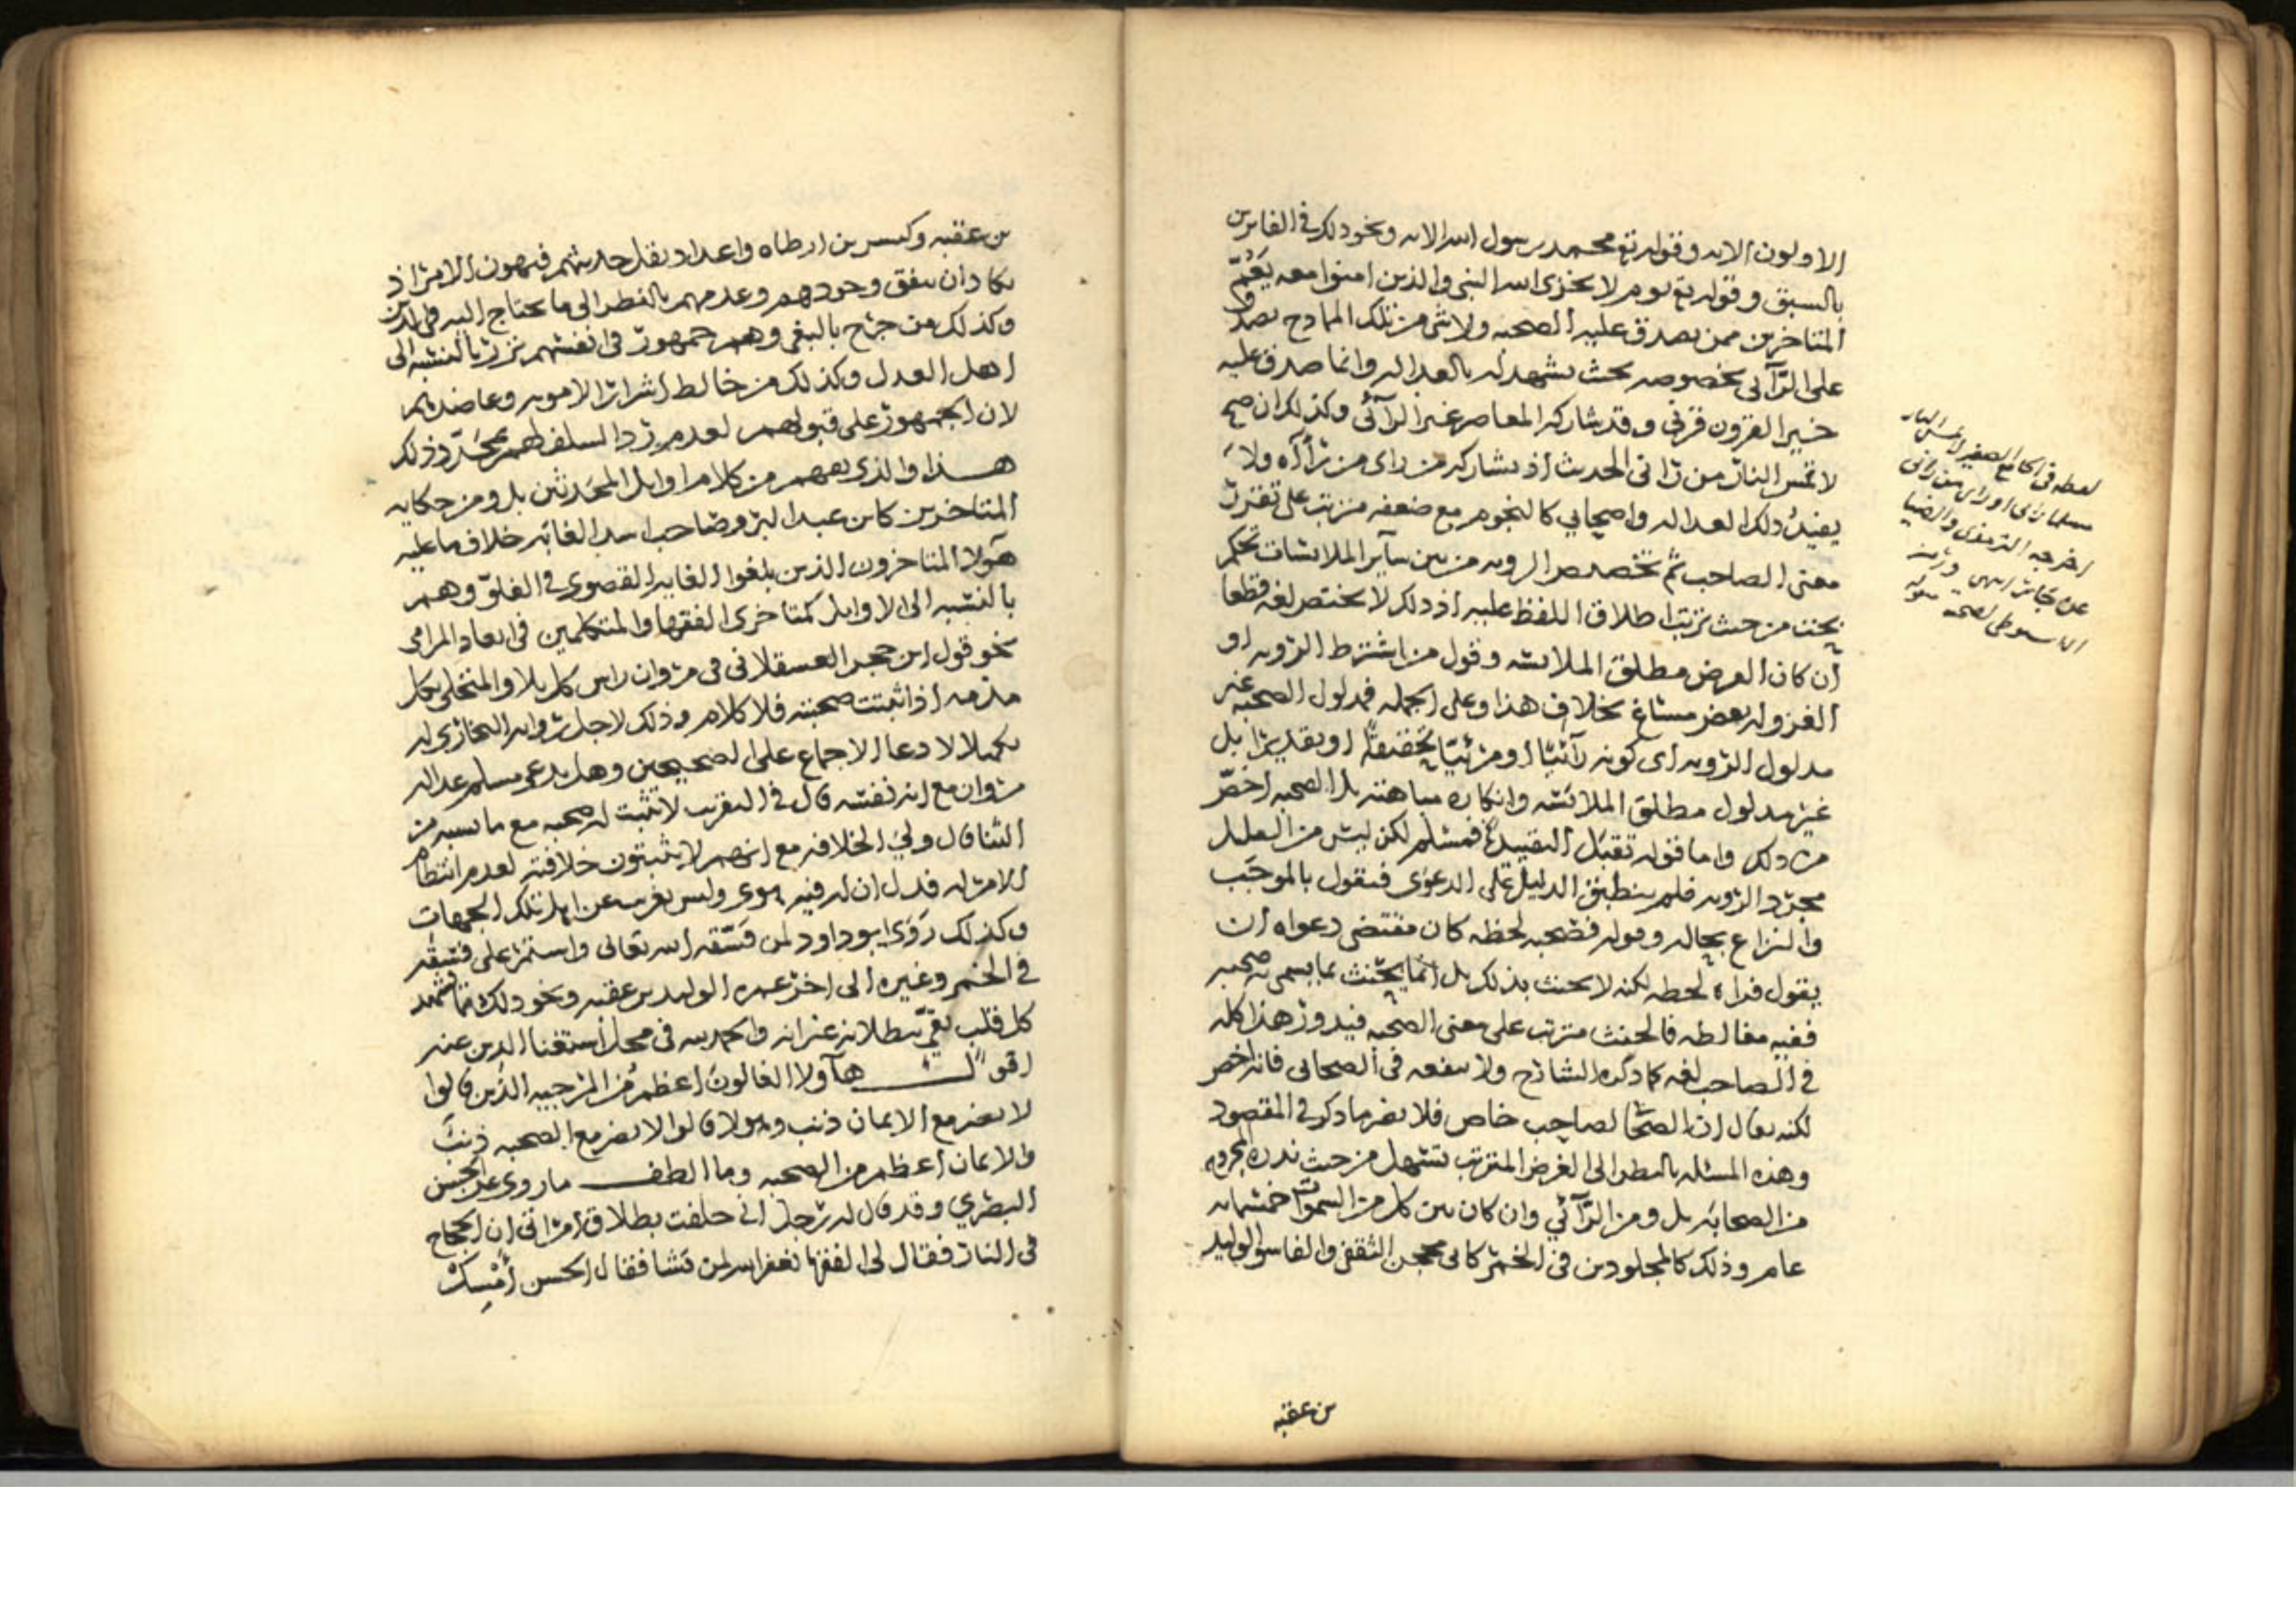 الاولون الايه وقوله تع محمد رسول الله الايه ونحو ذلك في الفايزين
بالسبق وقوله تع يوم لا يخزي الله النبي والذين امنوا معه يعم
المتاخرين ممن يصدق عليه الصحبه ولا شي من تلك المادح يصدق
على الرآئي بخصوصه بحيث يشهد له بالعداله وانما صدق عليه
خير القرون قرني وقد يشاركه المعاصر غير الرآئي وكذلك ان صح
لا تمس النار من رآني الحديث اذ يشاركه من راى من رآه ولا
يفيد ذلك العداله واصحابي كالنجوم مع ضعفه مترتب على تقرر
معنى الصاحب ثم تخصيص الرويه من بين سآير الملابسات تحكم
بحت من حيث ترتب اطلاق اللفظ عليه اذ ذلك لا يختص لغه قطعا
ان كان الغرض مطلق الملابسه وقول من اشترط الرويه او
الغزو له بعض مساغ بخلاف هذا وعلى الجمله فمدلول الصحبه غير
مدلول الرويه اى كونه رآئيا او مرئيا تحقيقا او تقديرا بل
غير مدلول مطلق الملابسه وانكاره مباهته بل الصحبه اخص
من ذلك واما قوله تقبل التقييد فمسلم لكن ليس من القليل
مجرد الرويه فلم ينطبق الدليل على الدعوى فنقول بالموجب
والنزاع بحاله وقوله فصحبه لحظه كان مقتضى دعواه ان
يقول فراه لحظه لكنه لا يحنث بذلك بل انما يحنث بما يسمى صحبه
ففيه مغالطه فالحنث مترتب على معنى الصحبه فيدور هذا كله
في الصاحب لغه كما ذكره الشارح ولا ينفعه في الصحابي فانه اخص
لكنه يقال ان الصحابي لصاحب خاص فلا يضر ما ذكر في المقصود
وهذه المسئله بالنظر الى الغرض المترتب تسهل من حيث ندره مجروح
من الصحابه بل ومن الرآئي وان كان بين كل من السموات خمسمايه
عام وذلك كالمجلودين في الخمر كابي محجن الثقفي والفاسق الوليد
بن عقبه
لفظه في الجامع الصغير لا تمس النار
مسلما راني او راى من راني
اخرجه الترمذي والضيا
عن جابر انتهى
السيوطي لصحته
بن عقبه وكبسر بن ارطاه واعداد يقل حديثهم فيهون الامر اذ
يكاد ان يتفق وجودهم وعدمهم بالنظر الى ما يحتاج اليه في الدين
وكذلك من جرح بالبغي وهم جمهور في انفسهم نزر بالنسبه الى
اهل العدل وكذلك من خالط اشرار الامويه وعاضدهم
لان الجمهور على قبولهم لعدم رد السلف لهم بمجرد ذلك
هذا والذى يفهم من كلام اوايل المحدثين بل ومن حكايه
المتاخرين كابن عبد البر وصاحب اسد الغابه خلاف ما عليه
هآولا المتاخرون الذين بلغوا الغايه القصوى في الغلو وهم
بالنسبه الى الاوايل كمتاخرى الفقها والمتكلمين في ابعاد المرامى
نحو قول ابن حجر العسقلاني في مروان راس كل بلا والمتحلي بكل
مذمه اذا ثبتت صحبته فلا كلام وذلك لاجل روايه البخارى له
تكميلا لادعا الاجماع على الصحيحين وهل يدعي مسلم عداله
مروان مع انه نفسه قال في التقريب لا تثبت له صحبه مع ما نسبه من
الثنا قال ولي الخلافه مع انهم لا يثبتون خلافته لعدم انتظام
الامر له فدل ان له فيه هوى وليس بغريب عن اهل تلك الجهات
وكذلك روى ابو داود لمن فسقه الله تعالى واستمر على فسقه
في الخمر وغيره الى اخر عمره الوليد بن عقبه ونحو ذلك مما يشهد
كل قلب تقي ببطلانه غير انه والحمد لله في محل استغنا الدين عنه
اقول هآولا الغالون اعظم من المرجيه الذين قالوا
لا يضر مع الايمان ذنب وهولا قالوا لا يضر مع الصحبه ذنب
والايمان اعظم من الصحبه وما الطف ما روى عن الحسن
البصري وقد قال له رجل اني حلفت بطلاق امراتي ان الحجاج
في النار فقال لي الفقها يغفر الله لمن يشا فقال الحسن امسك